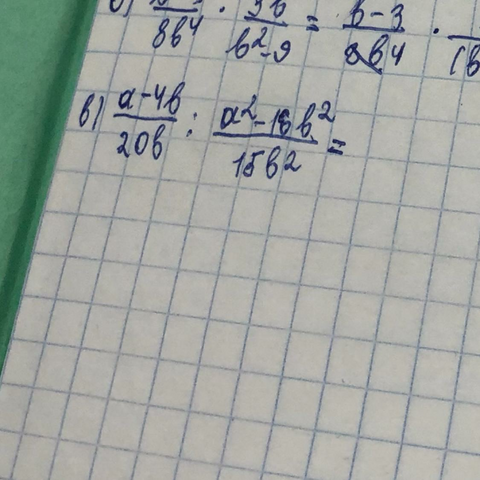 8b⁴ · b²-9 = b-3 / 8b4 ·
в) a-4b / 20b : a²-16b² / 15b2 =